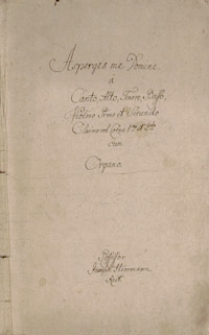 Asperges me Domine
á
Canto, Alto, Tenore, Basso,
Violino Primo et Secundo
Clarino vel Cornu 1mo et 2do
cum
Organo.
Joseph